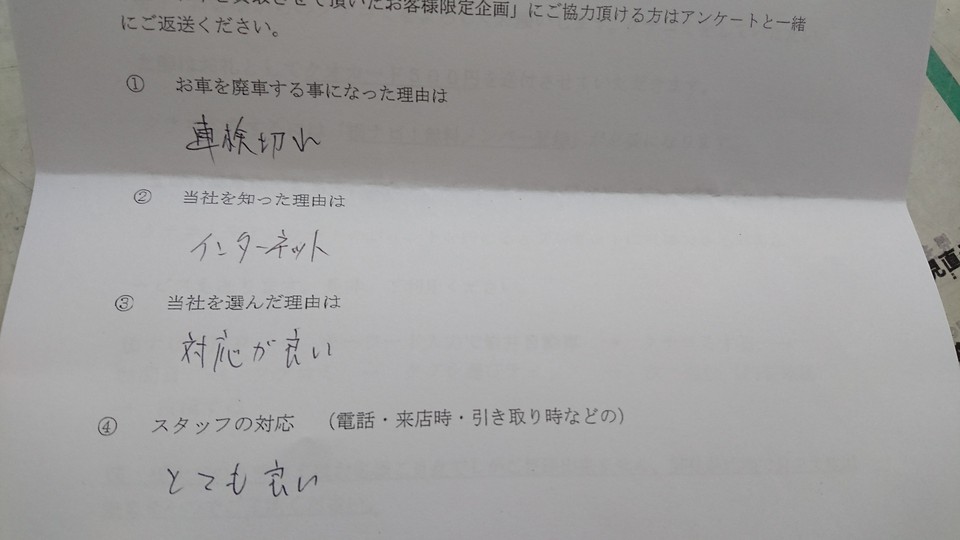 を買取させて頂いたお客様限定企画」にご協力頂ける方はアンケートと一緒
にご返送ください。
① お車を廃車する事になった理由は
車検切れ
② 当社を知った理由は
インターネット
③ 当社を選んだ理由は
対応が良い
④ スタッフの対応 （電話・来店時・引き取り時などの）
とても良い